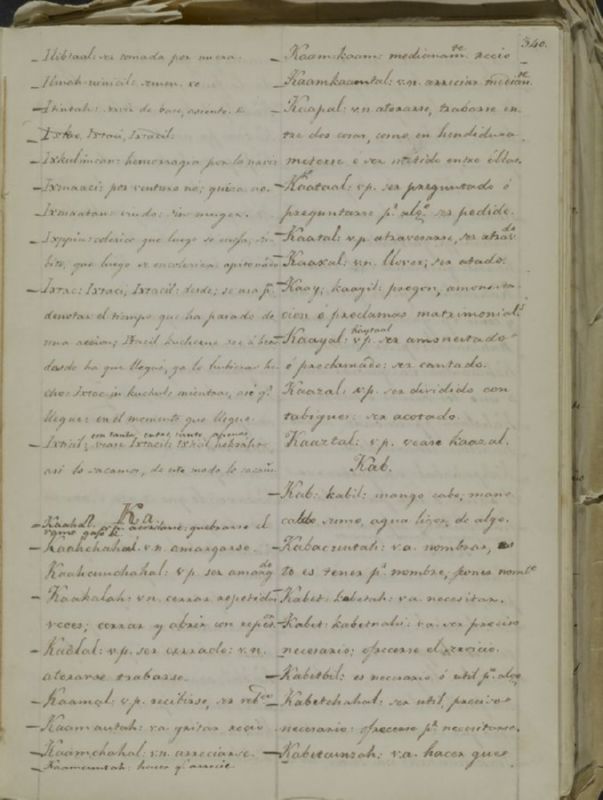 340.
Ilibtaal: ser tomada por nuera.
Ilmah-winicil: semen. vo
Itintah: servir de base, asiento. &
Ixtac, Ixtaci, Ixtacil:
Ixkulimcan: hemorragia por la nariz
Ixmaaci: por ventura no; quiza no.
Ixmaatan: viudo: sin muger.
Ixppin: colerico que luego se enoja, sú-
bito, que luego se encoleriza:
Ixtac: Ixtaci, Ixtacil: desde; se usa pª
denotar el tiempo que ha pasado de
una accion; Ixtacil kucheme
desde ha que llegué, ya lo hubieras he-
cho: Ixtac in kuchul: mientras, asi qe
llegue: en el momento que llegue.
Ixtacil; con tanto, entre tanto, apenas
vease Ixtacil; Ixtacil
asi lo sacamos, de este modo lo sacam
Ka
Kaahal. v.p. acordarse: quebrarse el
Kaahchahal. v.n. amargarse.
Kaahcunchahal: v.p. ser amarg do
Kaakalah: v.n. cerrar repetidas
veces; cerrar y abrir con repet.
Kaalal: v.p. ser cerrado: v.n.
atorarse trabarse.
Kaamal: v.p. recibirse, ser
Kaamautah: v.a. gritar recio
Kaamchahal: v.n. arreciarse.
Kaamcuntah: hacer qe arrecie
Kaamkaam: medianamte recio
Kaamkaamtal: v.n. arreciar mediante
Kaapal: v.n. atorarse, trabarse en-
tre dos cosas, como en hendidura
meterse ó ser metido entre ellas.
Kaataal: v.p. ser preguntado ó
preguntarse pr algo ser pedido.
Kaatal: v.p. atravesarse, ser atravdo
Kaaxal: v.n. llover; ser atado.
Kaay; kaayil: pregon, amonesta-
cion ó proclamas matrimonials
Kaayal: kaytaal v.p. ser amonestado
ó proclamado: ser cantado.
Kaazal: v.p. ser dividido con
tabiques: ser acotado.
Kaaztal: v.p. vease kaazal.
Kab.
Kab: kabil: mango cabo, mano
caldo sumo, agua liga, de algo.
Kabacuntah: v.a. nombrar,
to es tener pr nombre, poner nombe
Kabet: kabetah: v.a. necesitar.
Kabet: kabetnahi: v.a. ser preciso
necesario; ofrecerse el servicio.
Kabetbil: es necesario ó útil pª algo
Kabetchahal: ser util, preciso
necesario: ofrecerse pª necesitarse.
Kabetcunzah: v.a. hacer que se